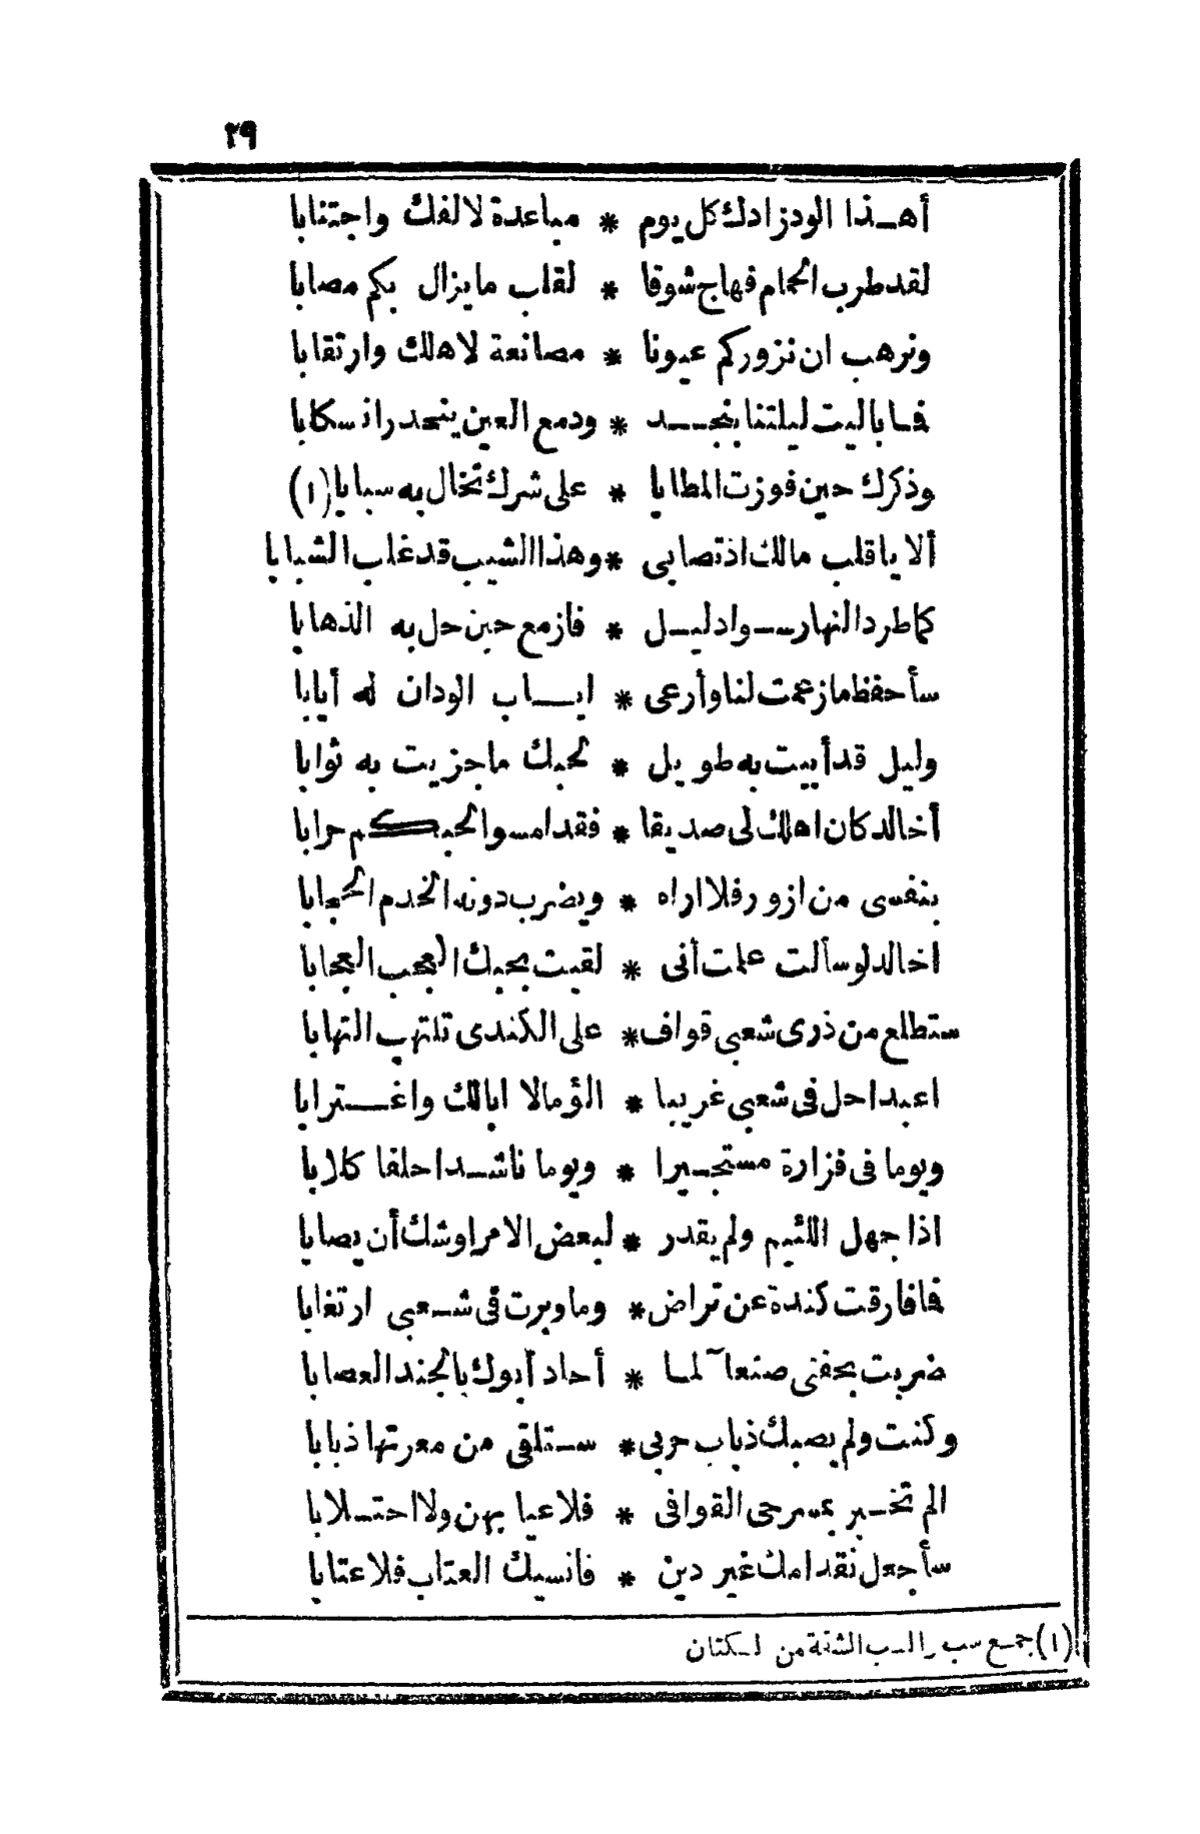 ٢٩
أهـذا الودزادك كل يوم * مباعدة لالفك واجتنابا
لقد طرب الحمام فهاج شوقا * لقلب مايزال بكم مصابا
ونرهب ان نزوركم عيونا * مصانعة لاهلك وارتقابا
فـاباليت ليلتنا بنجـــد * ودمع العين ينحدر انسكابا
وذكرك حين فوزت المطايا * على شرك تخال به سبابا (١)
ألا ياقلب مالك اذ تصابى * وهذا الشيب قد غلب الشبابا
كماطرد النهار ســواد ليــل * فازمع حين حل به الذهابا
سأحفظ مازعمت لنا وأرعى * ايـــاب الودان له أيابا
وليل قد أبيت به طويل * لحبك ماجزيت به ثوابا
أخالد كان اهلك لى صديقا * فقد امسوا لحبـكـم حرابا
بنفسى من ازور فلا اراه * ويضرب دونه الخدم الحجابا
اخالد لوسألت علمت أنى * لقيت بحبك العجب العجابا
ستطلع من ذرى شعبى قواف * على الكندى تلتهب التهابا
اعبدا حل فى شعبى غريبا * الؤما لا ابالك واغـــترابا
ويوما فى فزارة مستجــيرا * ويوما ناشــدا حلفا كلابا
اذا جهل اللئيم ولم يقدر * لبعض الامر اوشك أن يصابا
فافارقت كندة عن تراض * وماوبرت فى شـعبى ارتغابا
ضربت بحفتى صنعاآ لمـا * أحاد أبوك بالجند العصابا
وكنت ولم يصبك ذباب حربى * ستلقى من معرتها ذبابا
الم تخــبر بمسرحى القوافى * فلاعيا بهن ولا اجتـلابا
سأجعل نقد امك غير دين * فانسيك العتاب فلا عتابا
(١) جمـع سب والـب الشقة من لـكتان